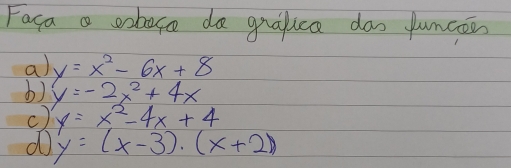 Faça o esboço do gráfico das funções
a) y = x² - 6x + 8
b) y = -2x² + 4x
c) y = x² - 4x + 4
d) y = (x-3) . (x+2)